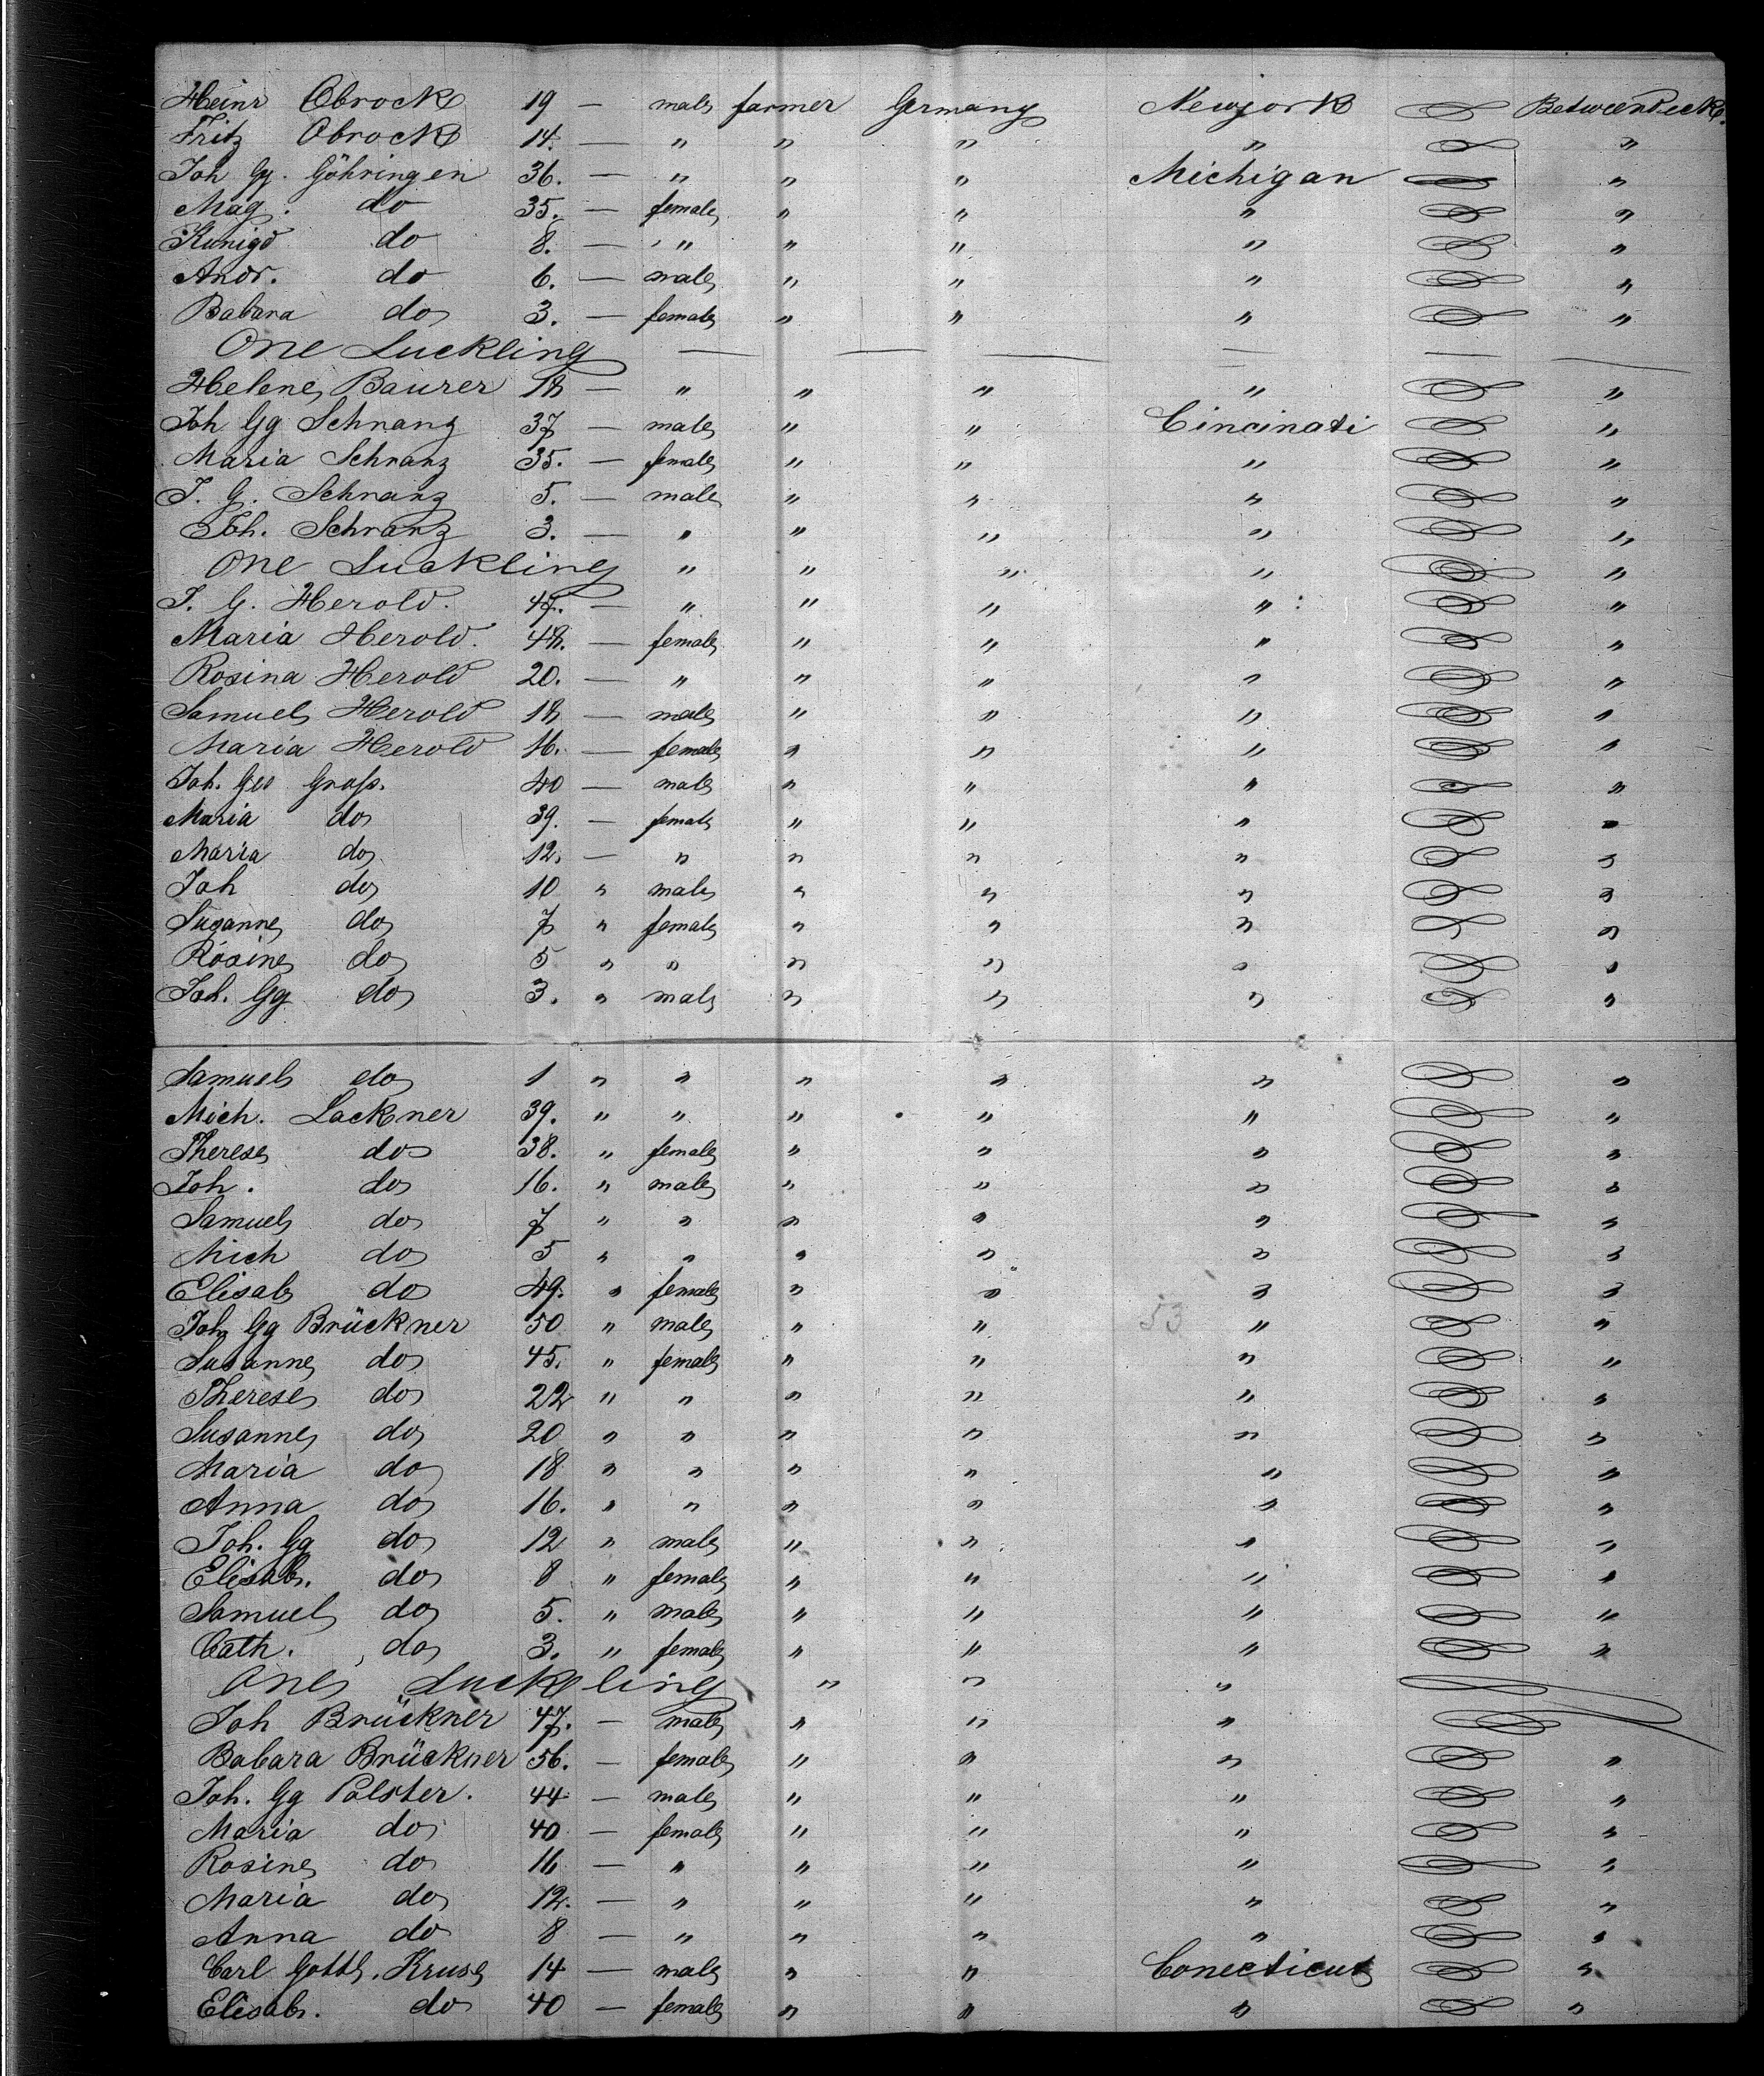 Heinr Obrock 19 — male farmer Germany Newyork Betweendeck.
Fritz Obrock 14. — " " " " "
Joh Gg. Göhringen 36. — " " " Michigan "
Mag. do 35. — female " " " "
Kunigd do 8. — " " " " "
Andr. do 6. — male " " " "
Babara do 3. — female " " " "
One Suckling — — — — — —
Helene Baurer 18 — " " " " "
Joh Gg Schranz 37 — male " " Cincinati "
Maria Schranz 35. — female " " " "
J. G. Schranz 5. — male " " " "
Joh. Schranz 3. — " " " " "
One Suckling " " " " "
J. G. Herold. 47. — " " " " "
Maria Herold. 48. — female " " " "
Rosina Herold 20. — " " " " "
Samuel Herold 18 — male " " " "
Maria Herold 16. — female " " " "
Joh. Geo Groſs. 40 — male " " " "
Maria do 39. — female " " " "
Maria do 12. — " " " " "
Joh do 10 " male " " " "
Susanne do 7 " female " " " "
Rosine do 5 " " " " " "
Joh. Gg do 3. " male " " " "
Samuel do 1 " " " " " "
Mich. Lackner 39. " " " " " "
Therese do 38. " female " " " "
Joh. do 16. " male " " " "
Samuel do 7 " " " " " "
Mich do 5 " " " " " "
Elisab do 49. " female " " " "
Joh Gg Brückner 50 " male " " 53 " "
Susanne do 45. " female " " " "
Therese do 22 " " " " " "
Susanne do 20 " " " " " "
Maria do 18 " " " " " "
Anna do 16. " " " " " "
Joh. Gg do 12 " male " " " "
Elisab. do 8 " female " " " "
Samuel do 5. " male " " " "
Cath. do 3. " female " " " "
One Suckling " " "
Joh Brückner 47. — male " " "
Babara Brückner 56. — female " " " "
Joh. Gg Polster. 44 — male " " " "
Maria do 40 — female " " " "
Rosine do 16 — " " " " "
Maria do 12. — " " " " "
Anna do 8 — " " " " "
Carl Gottl. Kruse 14 — male " " Conecticut "
Elisab. do 40 — female " " " "